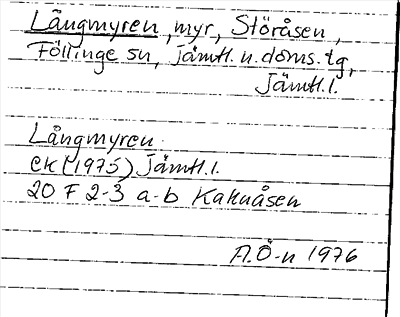 Långmyren, myr, Störåsen,
Föllinge sn, Jämtl. n. doms. tg,
Jämtl. l.
Långmyren
ek (1975) Jämtl. l.
20 F 2-3 a-b Kakuåsen
A.Ö-n 1976